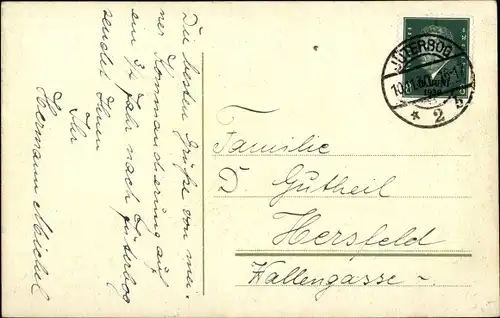 Die besten Grüße von mei-
ner Kommandierung auf
ein 3/4 Jahr nach Jüterbog
sendet Ihnen
Ihr
Hermann
JÜTERBOG
* 2
Familie
D. Gutheil
Hersfeld
Wallengasse